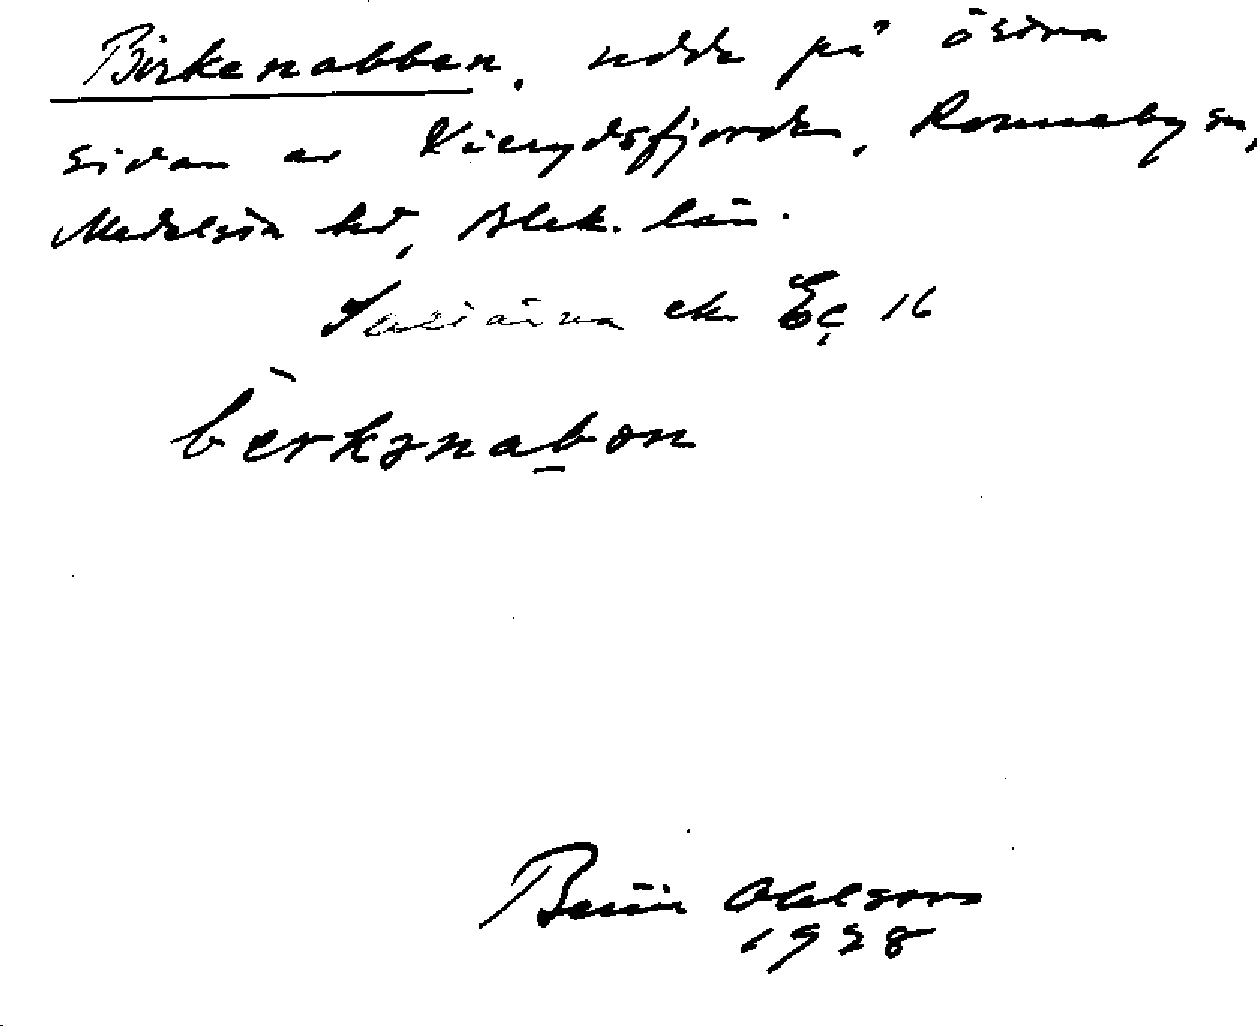 Birkenabben, udde på östra
sidan av Vierydsfjorden, Ronneby sn,
Medelsta hd, Blek. län.
ek. Eç 16
bèrkənabən
Bengt Ohlsson
1928